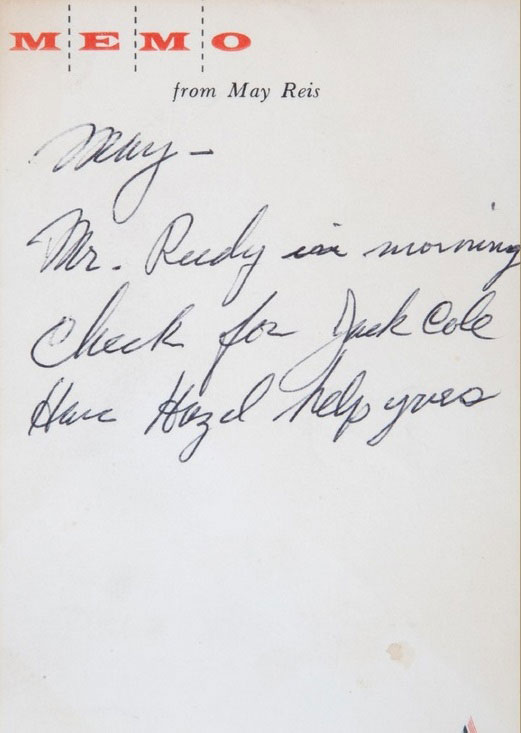 MEMO
from May Reis
May –
Mr. Rudy in morning
Check for Jack Cole
Have Hazel help yves